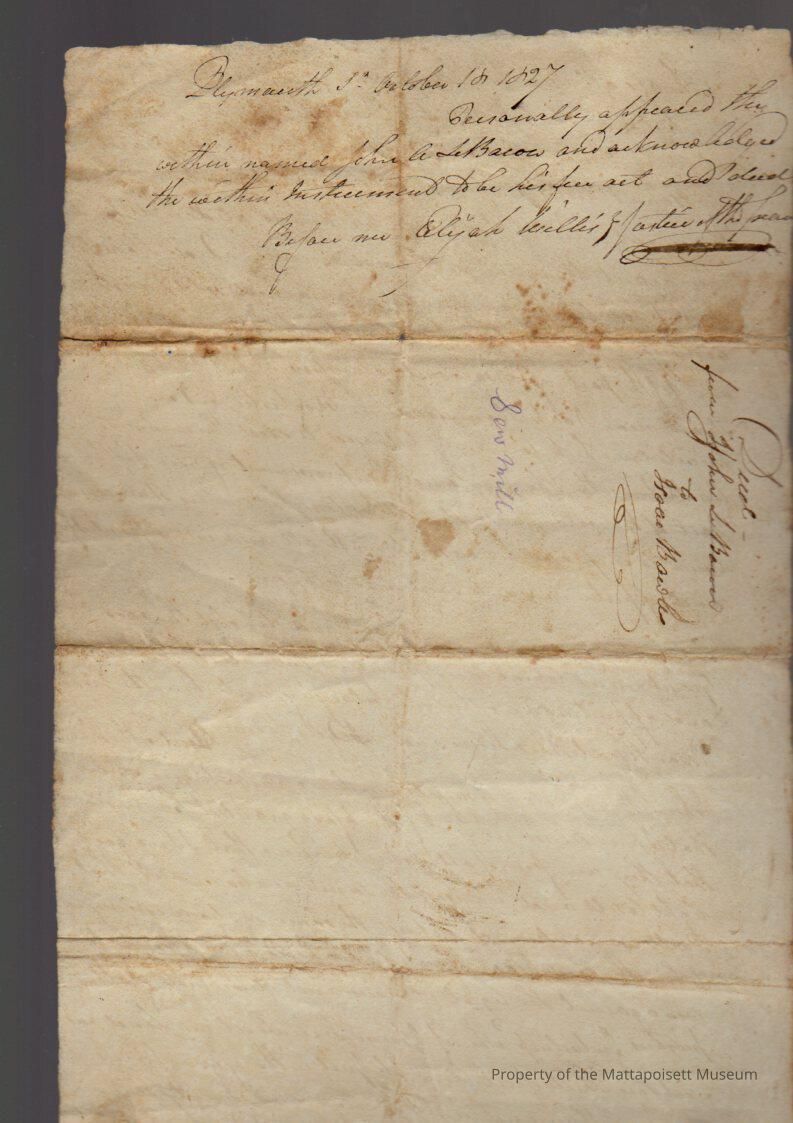 Plymouth Ss October 18 1827
Personally appeared the
within named John A LeBaron and acknowledged
the within Instrument to be his free act and deed
Before me Elijah Willis Justice of the Peace
Deed
from John LeBaron
to
Isaac Bowles
Sew Mill
Property of the Mattapoisett Museum